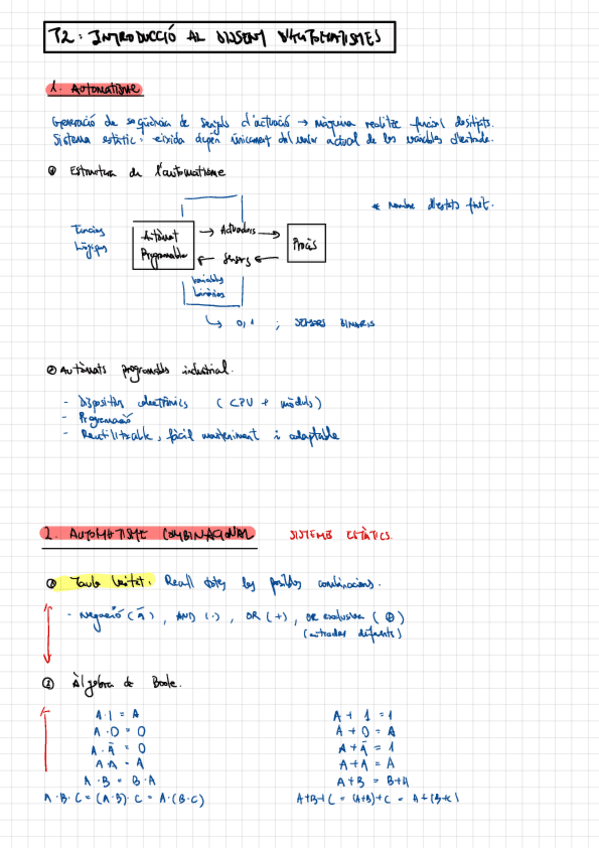 T2: INTRODUCCIÓ AL DISSENY D'AUTOMATISMES
1. AUTOMATISME
Generació de seqüència de senyals d'actuació → màquina realitza funcions desitjats.
Sistema estàtic: eixida depén únicament del valor actual de les variables d'entrada.
Estructura de l'automatisme
* Nombre d'estats finit.
Tècnies
Lògiques
Autòmat
Programable
→ Actuadors →
← Sensors ←
Procés
Variables
binàries
↳ 0,1 ; SENSORS BINARIS
Autòmats programables industrial.
- Dispositius electrònics (CPU + mòduls)
- Programació
- Reutilitzable, fàcil manteniment i adaptable
2. AUTOMATISME COMBINACIONAL
SISTEMES ESTÀTICS.
Taula Veritat. Recull totes les possibles combinacions.
- Negació (Ā), AND (·), OR (+), OR exclusiva (⊕)
(entrades diferents)
Àlgebra de Boole.
A·1 = A
A + 1 = 1
A·0 = 0
A + 0 = A
A·Ā = 0
A + Ā = 1
A·A = A
A + A = A
A·B = B·A
A+B = B+A
A·B·C = (A·B)·C = A·(B·C)
A+B+C = (A+B)+C = A+(B+C)